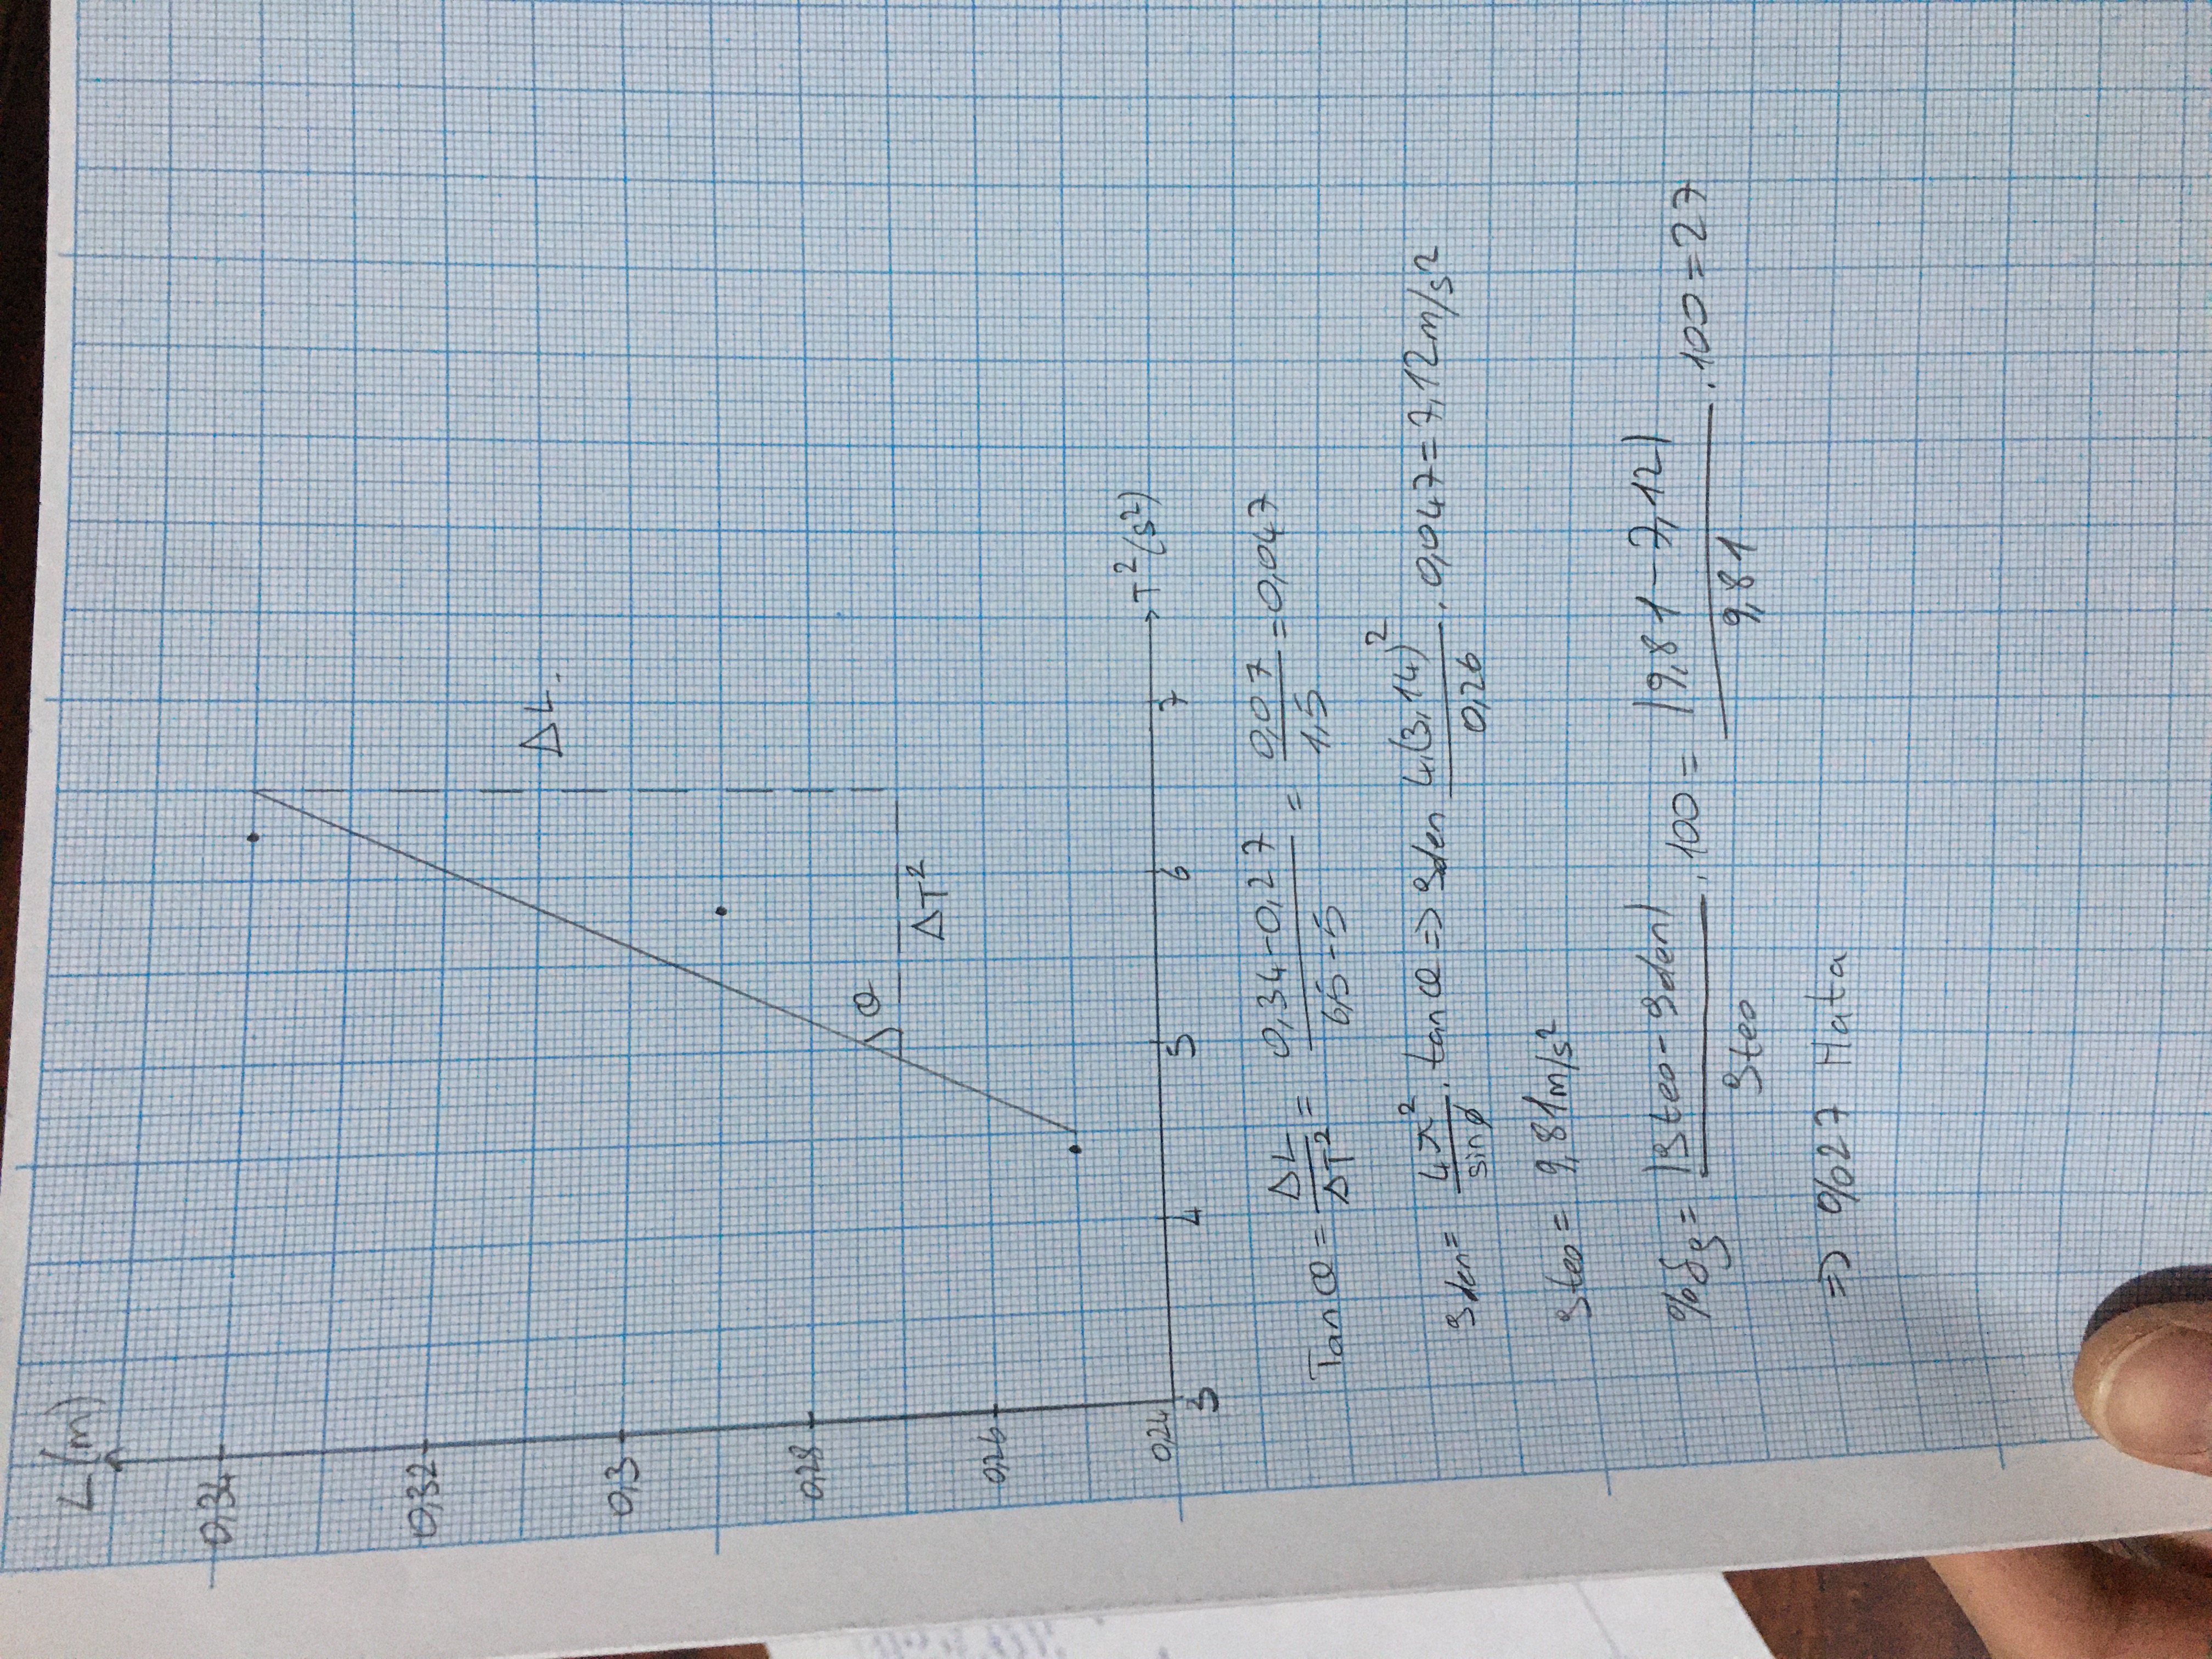 L(m)
0,34
0,32
ΔL
0,3
0,28
θ
ΔT²
0,26
0,24
T²(s²)
3 4 5 6 7
Tanθ = ΔL/ΔT² = (0,34-0,27)/(6,5-5) = 0,07/1,5 = 0,047
gden = 4π²/sinϕ . tanθ => gden 4.(3,14)²/0,26 . 0,047 = 7,12m/s²
gteo = 9,81m/s²
%δg = |gteo-gden|/gteo . 100 = |9,81-7,12|/9,81 . 100 = 27
=> %27 Hata